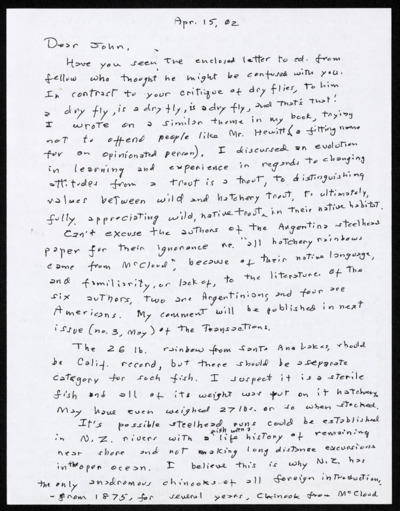 Apr. 15, 02
Dear John,
Have you seen the enclosed letter to ed. from
fellow who thought he might be confused with you.
In contrast to your critique of dry flies, to him
a dry fly, is a dry fly, is a dry fly, and that's that!
I wrote on a similar theme in my book, trying
not to offend people like Mr. Hewitt (a fitting name
for an opinionated person). I discussed an evolution
in learning and experience in regards to changing
attitudes from a trout is a trout, to distinguishing
values between wild and hatchery trout, to ultimately,
fully appreciating wild, native trout in their native habitat.
Can't excuse the authors of the Argentina steelhead
paper for their ignorance re. "all hatchery rainbows
came from McCloud", because of their native language,
and familiarity, or lack of, to the literature. Of the
six authors, two are Argentinians and four are
Americans. My comment will be published in next
issue (no. 3, May) of the Transactions.
The 26 lb. rainbow from Santa Ana Lakes, should
be Calif. record, but there should be a separate
category for such fish. I suspect it is a sterile
fish and all of its weight was put on it hatchery
May have even weighed 27 lbs. or so when stocked.
It's possible steelhead runs could be established
in N.Z. rivers with a fish with life history of remaining
near shore and not making long distance excursions
in the open ocean. I believe this is why N.Z. has
the only anadromous chinooks of all foreign introductions,
- from 1875, for several years, Chinook from McCloud